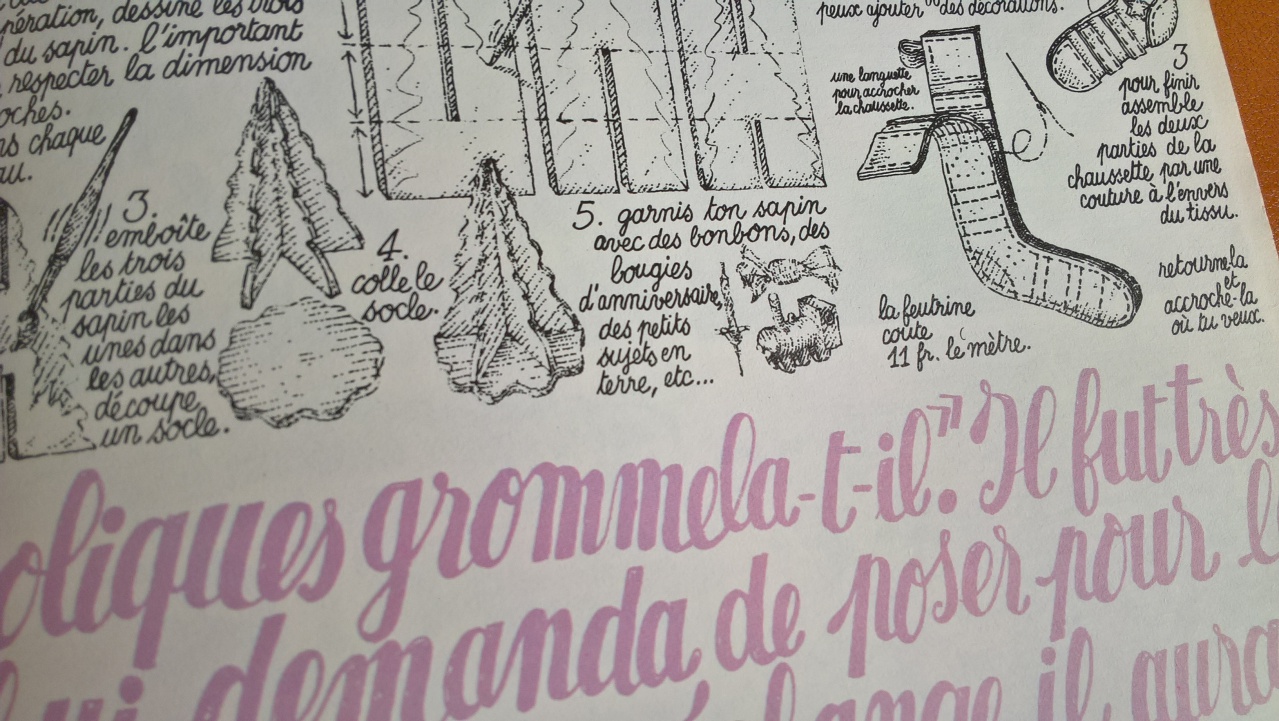 nération, dessine les trois
du sapin. l'important
respecter la dimension
oches.
ns chaque
au.
3.
emboîte
les trois
parties du
sapin les
unes dans
les autres,
découpe
un socle.
4.
colle le
socle.
5. garnis ton sapin
avec des bonbons, des
bougies
d'anniversaire,
des petits
sujets en
terre, etc...
peux ajouter des décorations.
une languette
pour accrocher
la chaussette.
la feutrine
coûte
11 fr. le mètre.
3
pour finir
assemble
les deux
parties de la
chaussette, par une
couture à l'envers
du tissu.
retourne-la
et
accroche-la
où tu veux.
oliques grommela-t-il." Il fut très
lui demanda de poser pour l
lange il aura